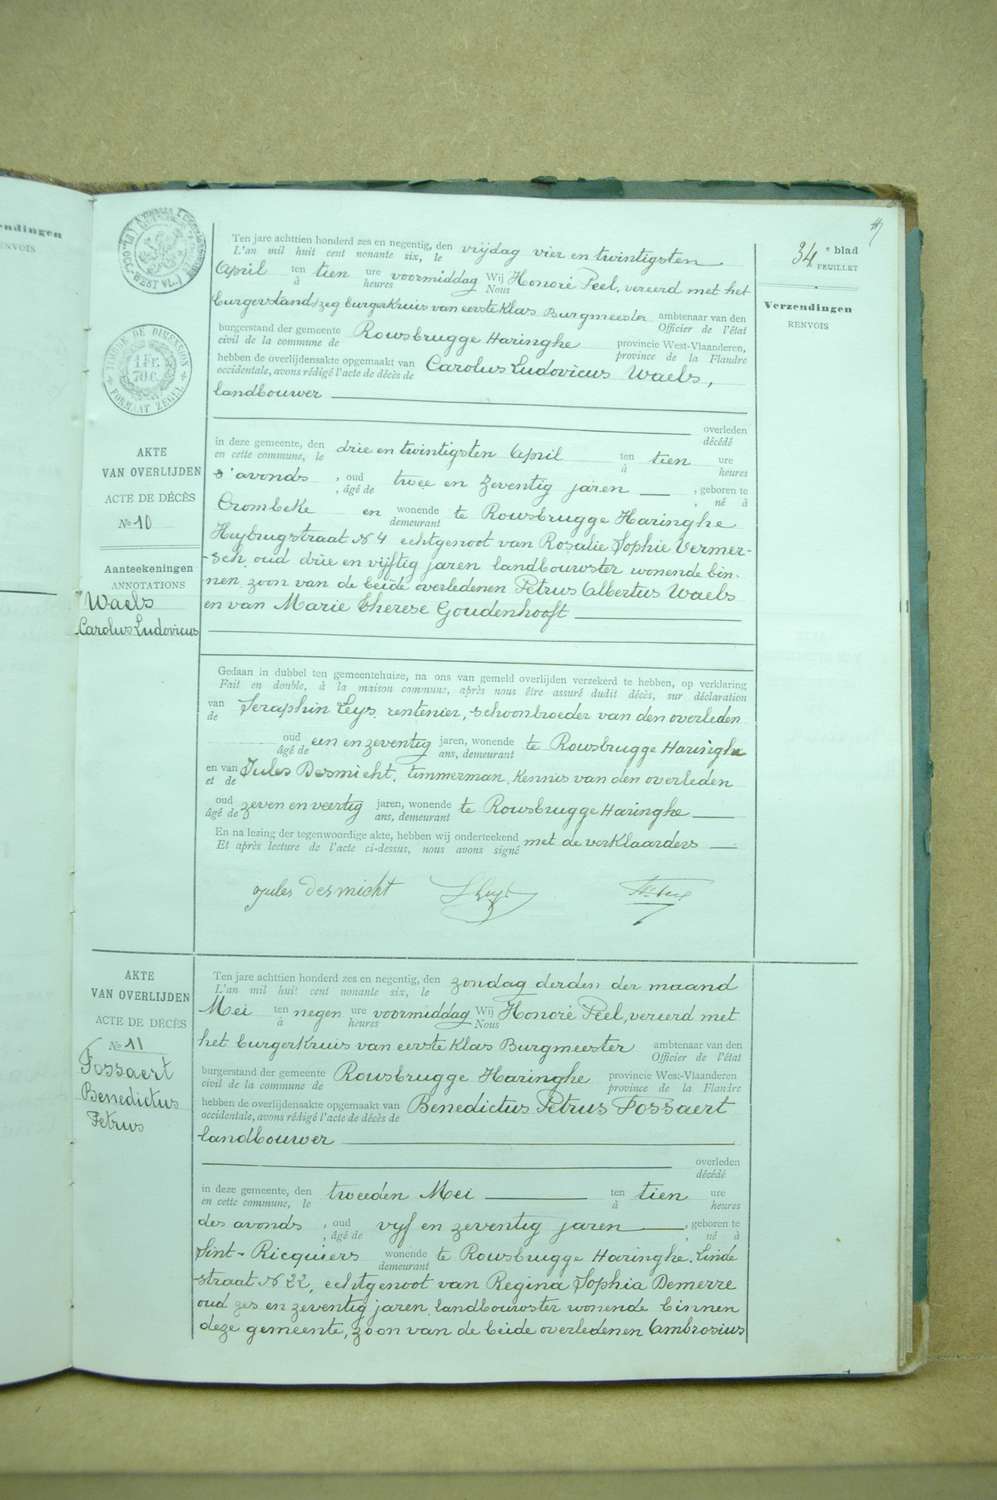 34e blad
FEUILLET
Verzendingen
RENVOIS
TIMBRE DE DIMENSION
1 Fr.
70 C.
FORMAAT ZEGEL
AKTE
VAN OVERLIJDEN
ACTE DE DÉCÈS
No 10
Aanteekeningen
ANNOTATIONS
Waels
Carolus Ludovicus
Ten jare achttien honderd zes en negentig, den vrijdag vier en twintigsten
L'an mil huit cent nonante six, le
April ten tien ure voormiddag Wij Honoré Peel, vereerd met het
à heures Nous
burgerstands zeg burgerkruis van eerste Klas Burgmeester ambtenaar van den
Officier de l'état
burgerstand der gemeente Rousbrugge Haringhe provincie West-Vlaanderen,
civil de la commune de province de la Flandre
hebben de overlijdensakte opgemaakt van Carolus Ludovicus Waels,
occidentale, avons rédigé l'acte de décès de
landbouwer
overleden
décédé
in deze gemeente, den drie en twintigsten April ten tien ure
en cette commune, le à heures
s'avonds , oud twee en zeventig jaren , geboren te
, âgé de , né à
Crombeke en wonende te Rousbrugge Haringhe
demeurant
Heybrugstraat No 4 echtgenoot van Rosalie Sophie Vermer-
-sch, oud drie en vijftig jaren landbouwster wonende bin-
nen, zoon van de beide overledenen Petrus Albertus Waels
en van Marie Therese Goudenhooft
Gedaan in dubbel ten gemeentehuize, na ons van gemeld overlijden verzekerd te hebben, op verklaring
Fait en double, à la maison commune, après nous être assuré dudit décès, sur déclaration
van Seraphin Leys, rentenier, schoonbroeder van den overleden
de
oud een en zeventig jaren, wonende te Rousbrugge Haringhe
âgé de ans, demeurant
en van Jules Desmicht, timmerman, kennis van den overleden
et de
oud zeven en veertig jaren, wonende te Rousbrugge Haringhe
âgé de ans, demeurant
En na lezing der tegenwoordige akte, hebben wij onderteekend met de verklaarders
Et après lecture de l'acte ci-dessus, nous avons signé
Jules Desmicht
AKTE
VAN OVERLIJDEN
ACTE DE DÉCÈS
No 11
Fossaert
Benedictus
Petrus
Ten jare achttien honderd zes en negentig, den zondag derden der maand
L'an mil huit cent nonante six, le
Mei ten negen ure voormiddag Wij Honoré Peel, vereerd met
à heures Nous
het burgerkruis van eerste Klas Burgmeester ambtenaar van den
Officier de l'état
burgerstand der gemeente Rousbrugge Haringhe provincie West-Vlaanderen
civil de la commune de province de la Flandre
hebben de overlijdensakte opgemaakt van Benedictus Petrus Fossaert
occidentale, avons rédigé l'acte de décès de
landbouwer
overleden
décédé
in deze gemeente, den tweeden Mei ten tien ure
en cette commune, le à heures
des avonds , oud vijf en zeventig jaren , geboren te
, âgé de , né à
Sint-Ricquiers wonende te Rousbrugge Haringhe, Linde
demeurant
straat No 22, echtgenoot van Regina Sophia Demerre
oud zes en zeventig jaren, landbouwster wonende binnen
deze gemeente, zoon van de beide overledenen Ambrosius